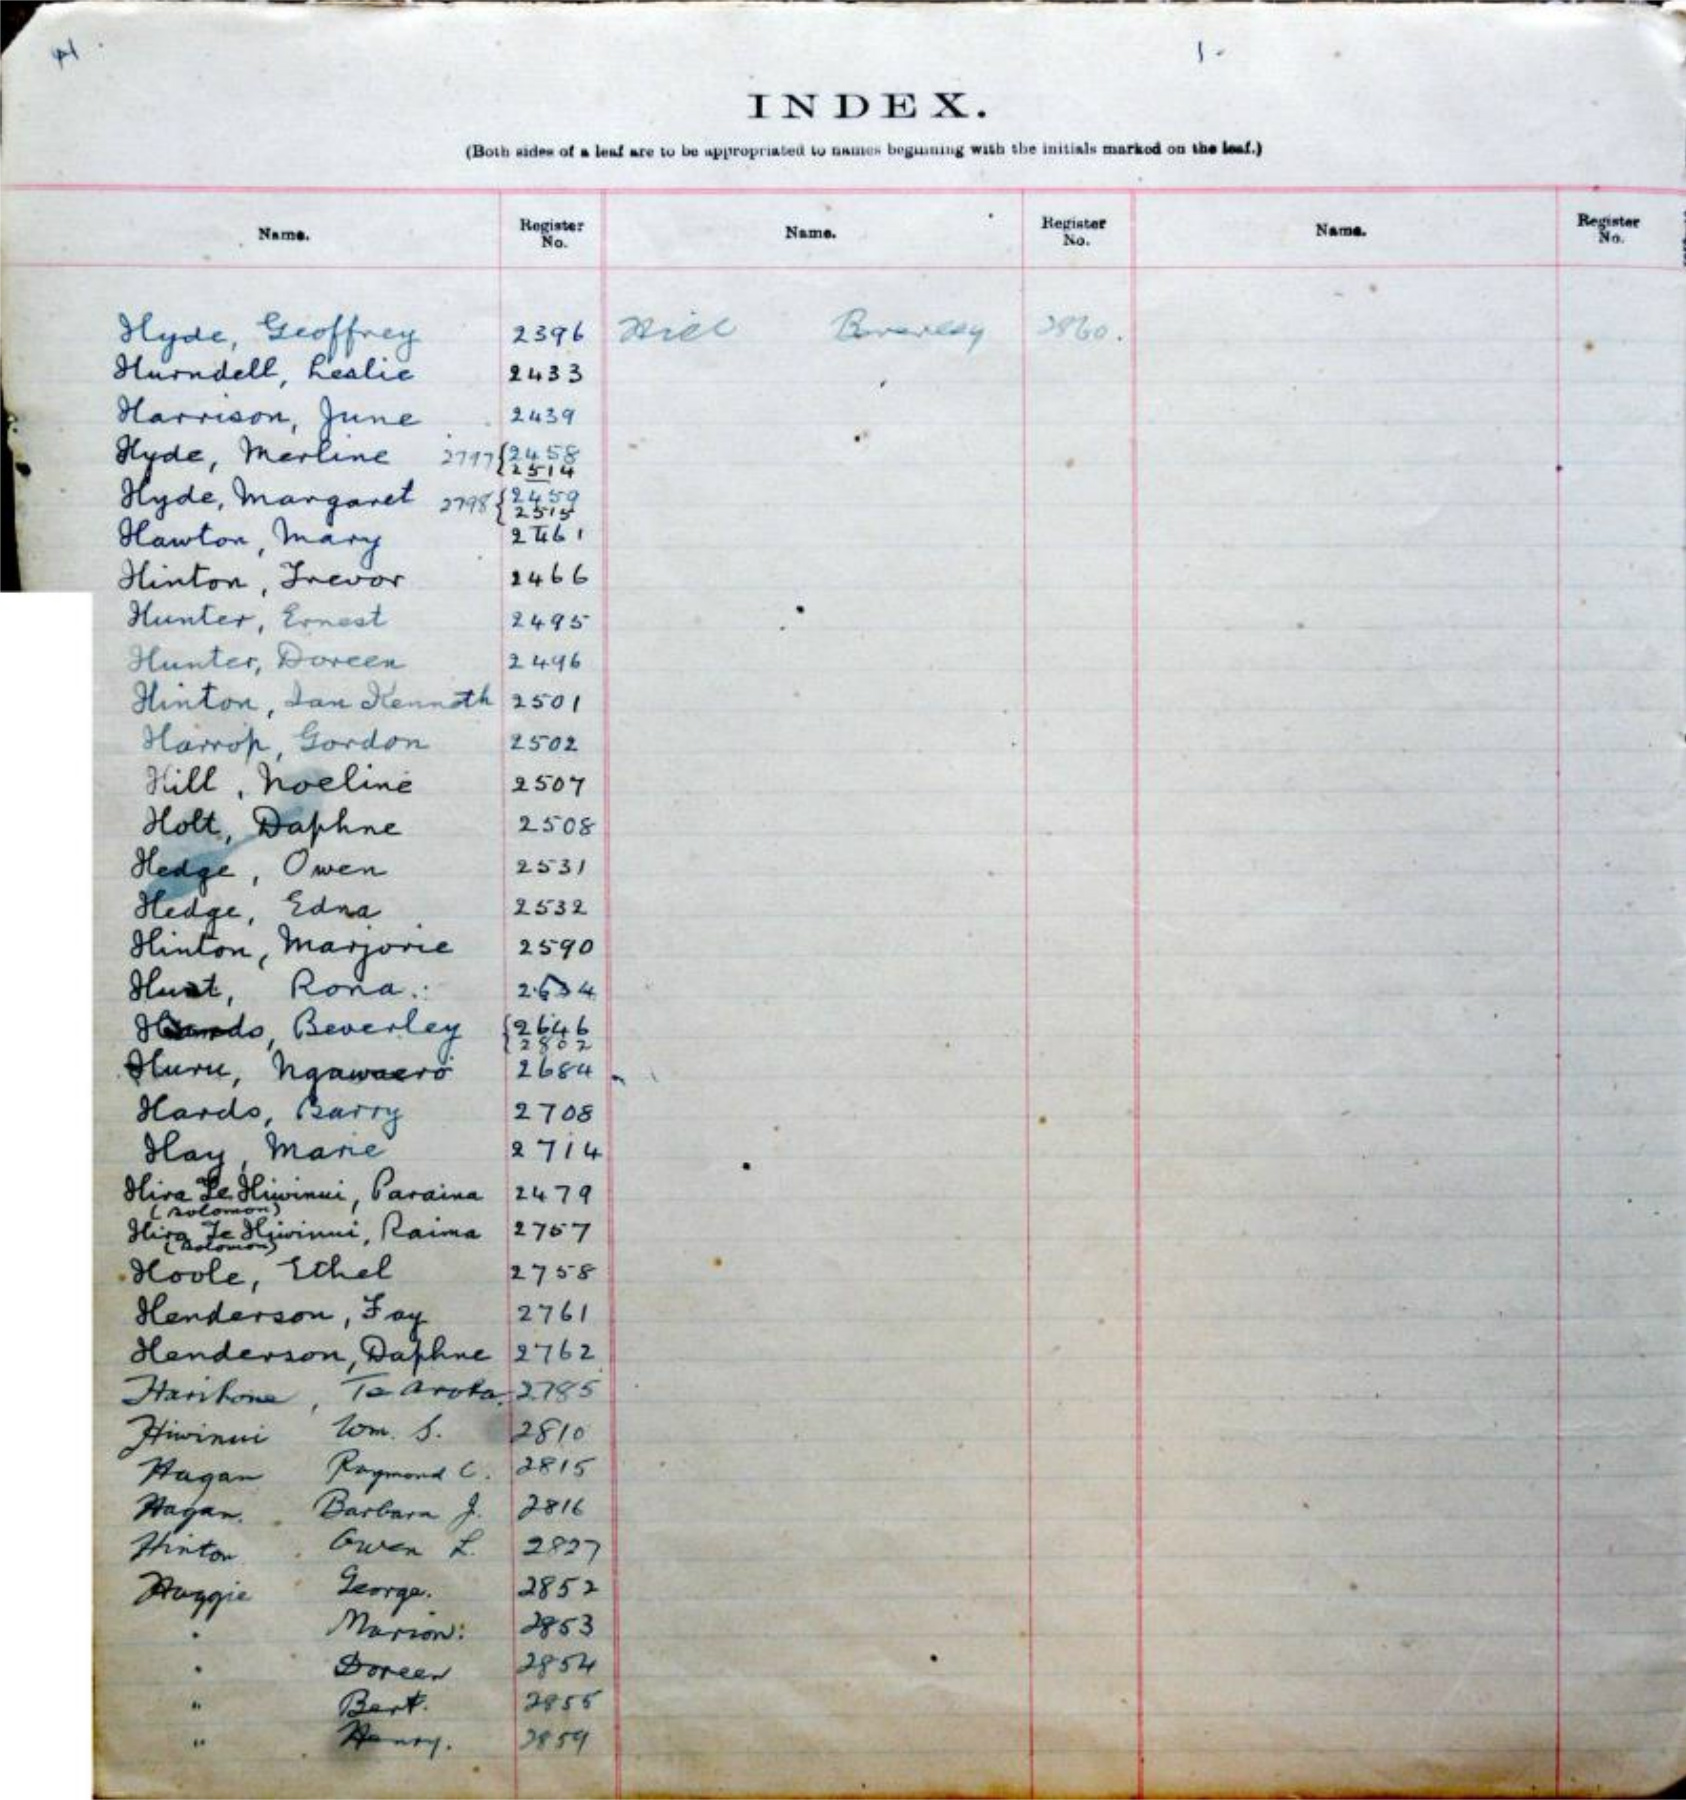 H
INDEX.
(Both sides of a leaf are to be appropriated to names beginning with the initials marked on the leaf.)
Name. Register No. Name. Register No. Name. Register No.
Hyde, Geoffrey 2396 Hill Beverley 2860.
Hurndell, Leslie 2433
Harrison, June 2439
Hyde, Merline 2797 {2458
2514
Hyde, Margaret 2798 {2459
2515
Hawton, Mary 2461
Hinton, Trevor 2466
Hunter, Ernest 2495
Hunter, Doreen 2496
Hinton, Ian Kenneth 2501
Harrop, Gordon 2502
Hill, Noeline 2507
Holt, Daphne 2508
Hedge, Owen 2531
Hedge, Edna 2532
Hinton, Marjorie 2590
Rona. 2634
Hards, Beverley {2646
2802
Huru, Ngawaero 2684
Hards, Barry 2708
Hay, Marie 2714
Hira Te Hiwinui, Paraina 2479
(Solomon)
Hira Te Hiwinui, Raima 2757
(Solomon)
Hoole, Ethel 2758
Henderson, Fay 2761
Henderson, Daphne 2762
Harihona, Te Aroha. 2785
Hiwinui Wm. S. 2810
Hagan Raymond C. 2815
Hagan. Barbara J. 2816
Hinton Owen L. 2827
Haggie George. 2852
" Marion: 2853
" Doreen 2854
" Bert. 2855
" Henry. 2859